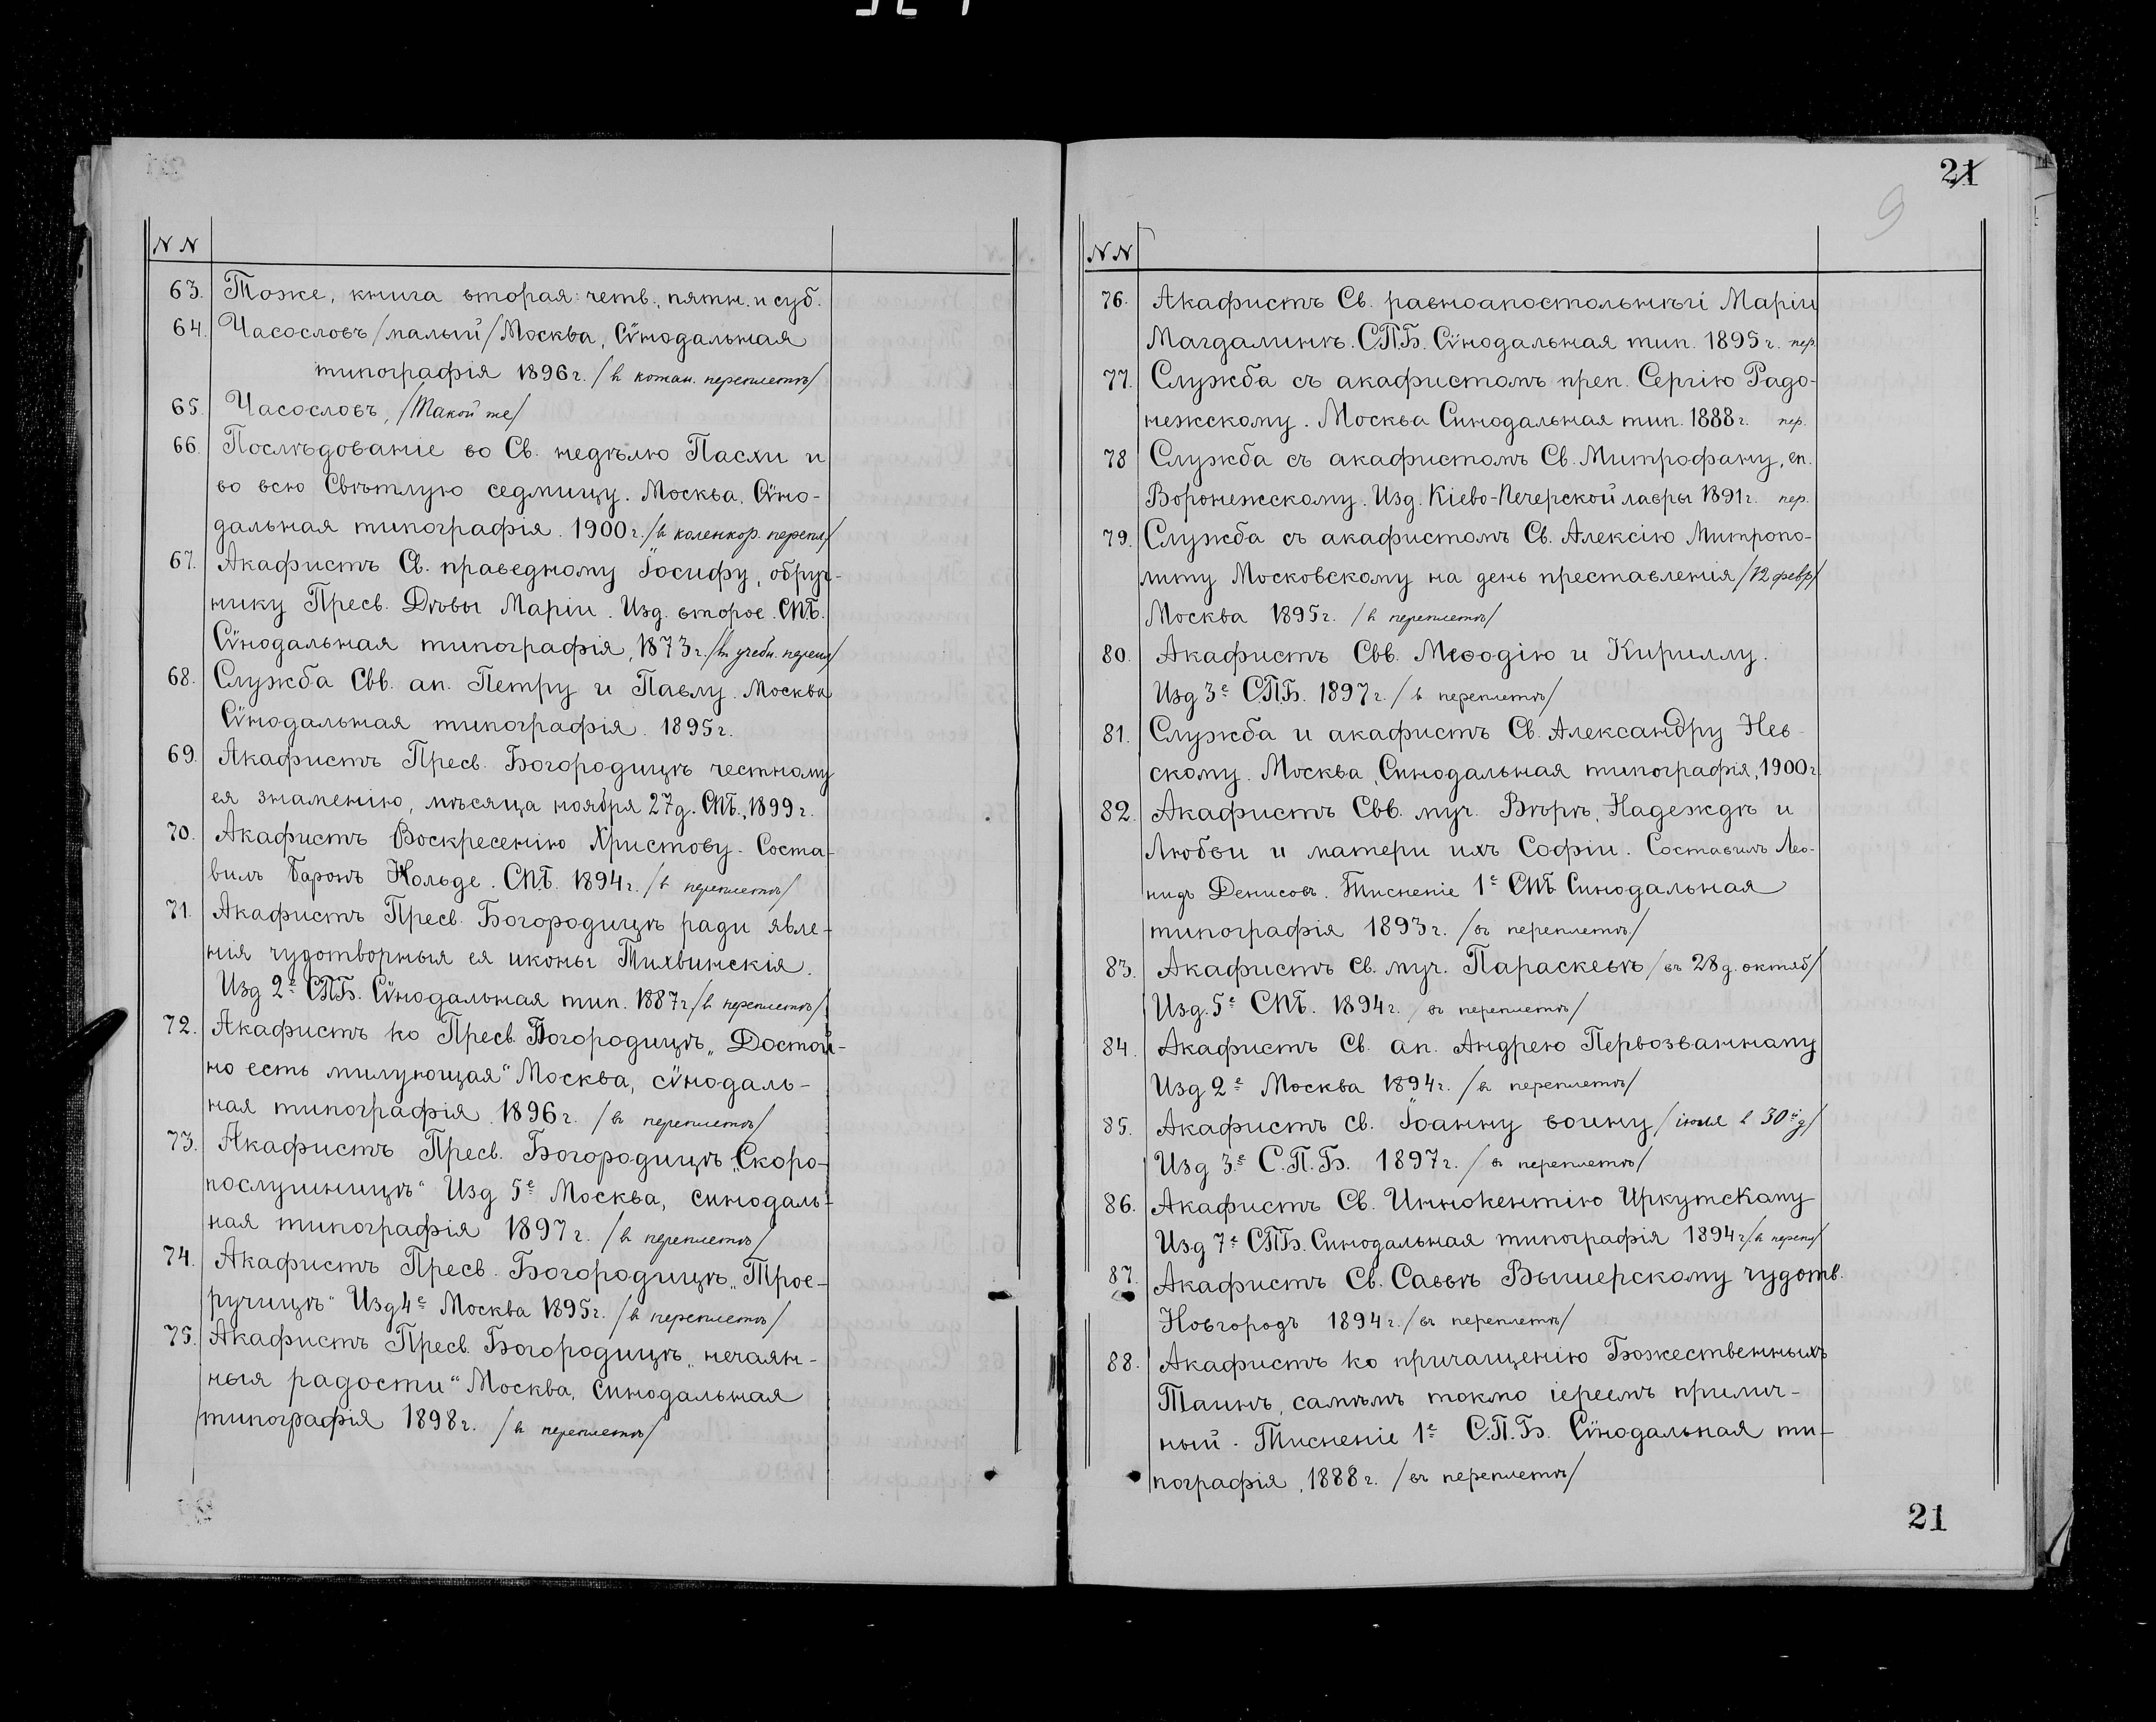 N N
63. Тоже, книга вторая: четв., пятн. и суб.
64. Часословъ /малый/ Москва, Сѵнодальная
типографія 1896 г. /в кожан. переплетѣ/
65. Часословъ, /Такой же/
66. Послѣдованіе во Св. недѣлю Пасхи и
во всю Свѣтлую седмицу. Москва. Сѵно-
дальная типографія. 1900 г. /в коленкор. перепл/
67. Акафистъ Св. праведному Іосифу, обруч-
нику Пресв. Дѣвы Маріи. Изд. второе. СПБ.
Сѵнодальная типографія, 1873 г. /въ учебн. перепл/
68. Служба Свв. ап. Петру и Павлу. Москва
Сѵнодальная типографія. 1895 г.
69. Акафистъ Пресв. Богородицѣ честному
ея знаменію, мѣсяца ноября 27 д. СПБ., 1899 г.
70. Акафистъ Воскресенію Христову. Соста-
вилъ Баронъ Нольде. СПБ. 1894 г. /в переплетѣ/
71. Акафистъ Пресв. Богородицѣ ради явле-
нія чудотворныя ея иконы Тихвинскія.
Изд 2е СПБ. Сѵнодальная тип. 1887 г /в переплетѣ/
72. Акафистъ ко Пресв. Богородицѣ „Достой-
но есть милующая“ Москва, сѵнодаль-
ная типографія. 1896 г. /в переплетѣ/
73. Акафистъ Пресв. Богородицѣ „Скоро-
послушницѣ“ Изд 5е Москва, синодаль-
ная типографія 1897 г. /в переплетѣ/
74. Акафистъ Пресв. Богородицѣ „Трое-
ручицѣ“ Изд 4е Москва 1895 г. /в переплетѣ/
75. Акафистъ Пресв. Богородицѣ „нечаян-
ныя радости“ Москва, Синодальная
типографія 1898 г. /в переплетѣ/
21
9
N N
76. Акафистъ Св. равноапостольнѣй Маріи
Магдалинѣ. СПБ. Сѵнодальная тип. 1895 г. пер.
77. Служба съ акафистомъ преп. Сергію Радо-
нежскому. Москва Синодальная тип. 1888 г. пер.
78 Служба съ акафистомъ Св. Митрофану, еп.
Воронежскому. Изд. Кіево-Печерской лавры 1891 г. пер.
79. Служба съ акафистомъ Св. Алексію Митропо-
литу Московскому на день преставленія /12 февр/
Москва 1895 г. /в переплетѣ/
80. Акафистъ Свв. Меѳодію и Кириллу.
Изд 3е С.П.Б. 1897 г. /в переплетѣ/
81. Служба и акафистъ Св. Александру Нев-
скому. Москва, Синодальная типографія, 1900 г.
82. Акафистъ Свв. муч. Вѣрѣ, Надеждѣ и
Любви и матери ихъ Софіи. Составилъ Лео-
нидъ Денисовъ. Тисненіе 1е СПБ Синодальная
типографія 1893 г. /въ переплетѣ/
83. Акафистъ св. муч. Параскевѣ /въ 28 д. октяб/
Изд. 5е СПБ. 1894 г. /въ переплетѣ/
84. Акафистъ Св. ап. Андрею Первозванному
Изд 2е Москва 1894 г. /в переплетѣ/
85. Акафистъ св. Іоанну воину /іюля в 30й д/
Изд 3е С.П.Б. 1897 г. /в переплетѣ/
86. Акафистъ Св. Иннокентію Иркутскому
Изд 7е СПБ. Синодальная типографія 1894 г /в перепл/
87. Акафистъ Св. Саввѣ Вишерскому чудотв.
Новгородъ 1894 г. /въ переплетѣ/
88. Акафистъ ко причащенію Божественныхъ
Таинъ, самѣмъ токмо іереемъ прилич-
ный. Тисненіе 1е С.П.Б. Сѵнодальная ти-
пографія, 1888 г. /въ переплетѣ/
21